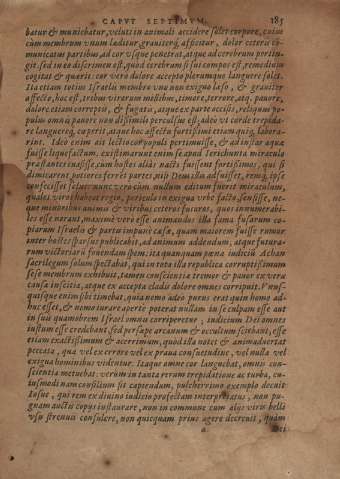 CAPVT SEPTIMVM. 185
batur & muniebatur, velut in animali accidere solet corpore, cuius
cùm membrum vnum læditur grauiterq́; afficitur, dolor ceteris com-
municatus partibus, ad cor vsque penetrat, atque ad cerebrum pertin-
git, sed in eo discrimen est, quòd cerebrum si sui compos est, remedium
cogitat & quærit: cor verò dolore accepto plerumque languere solet.
Ita etiam totius Israelis membro vno non exiguo læso, & grauiter
affecto, hoc est, tribus viterorum millibus, timore, terrore, atq́; pauore,
dolore etiam correptis, & fugatis, atque ex parte occisis, reliquum po-
pulum omnis pauore non dissimili perculsus est, adeò vt corde trepida-
re languereq́; ceperit, atque hoc affectu fortissimi etiam quiq́; labora-
rint. Ideo enim ait lectio cor populi pertimuisse, & ad instar aquæ
fuisse liquefactum. existimarant enim se apud Ierichuntis miraculo
præstantes euasisse, cum hostes aliàs nacti fuissent fortissimos, qui si
dimicarent potiores ferrent partes, nisi Deus illis adfuisset, remq́; ipse
confecisset solus: nunc verò cùm nullum editum fuerit miraculum,
quales viros habeat regio, periculo in exigua vrbe facto, sensisse, ne-
que minoribus animis & viribus ceteros futuros, quos innumerabi-
les esse norant, maximè verò esse animandos illa fama fusarum co-
piarum Israelis & partæ impunè cædis, quam maiorem fuisse rumor
inter hostes sparsus publicabit, ad animum addendum, atque futura-
rum victoriarum fouendam spem. ita quanquam pœna iudicij Acham
sacrilegum solum spectabat, qui in tota illa republica corruptissimum
sese membrum exhibuit, tamen conscientiæ tremor & pauor ex vera
causa inscitia, atque ex accepta cladis dolore omnes corripuit. Vnus-
quisque enim sibi timebat, quia nemo adeo purus erat quin homo ad-
huc esset, & nemo iurare apertè poterat nullam in se culpam esse aut
in suis quamobrem Israel omnis corriperetur, iudicium Dei omnes
iustum esse credebant, sed persæpe arcanum & occultum sciebant, esse
etiam exactissimum & acerrimum, quod illa notet & animaduertat
peccata, qua vel ex errore vel ex praua consuetudine, vel nulla vel
exigua hominibus videntur. Itaque omne cor languebat, omnis con-
scientia metuebat. verùm in tanta rerum trepidatione ac turba, cu-
iusmodi nam consilium sit capiendum, pulcherrimo exemplo docuit
Iosue, qui rem ex diuino iudicio profectam interpretatus, non pu-
gnam auctis copijs instaurare, non in commune cum alijs viris belli
vsu strenuis consulere, non quicquam prius agere decreuit, quàm